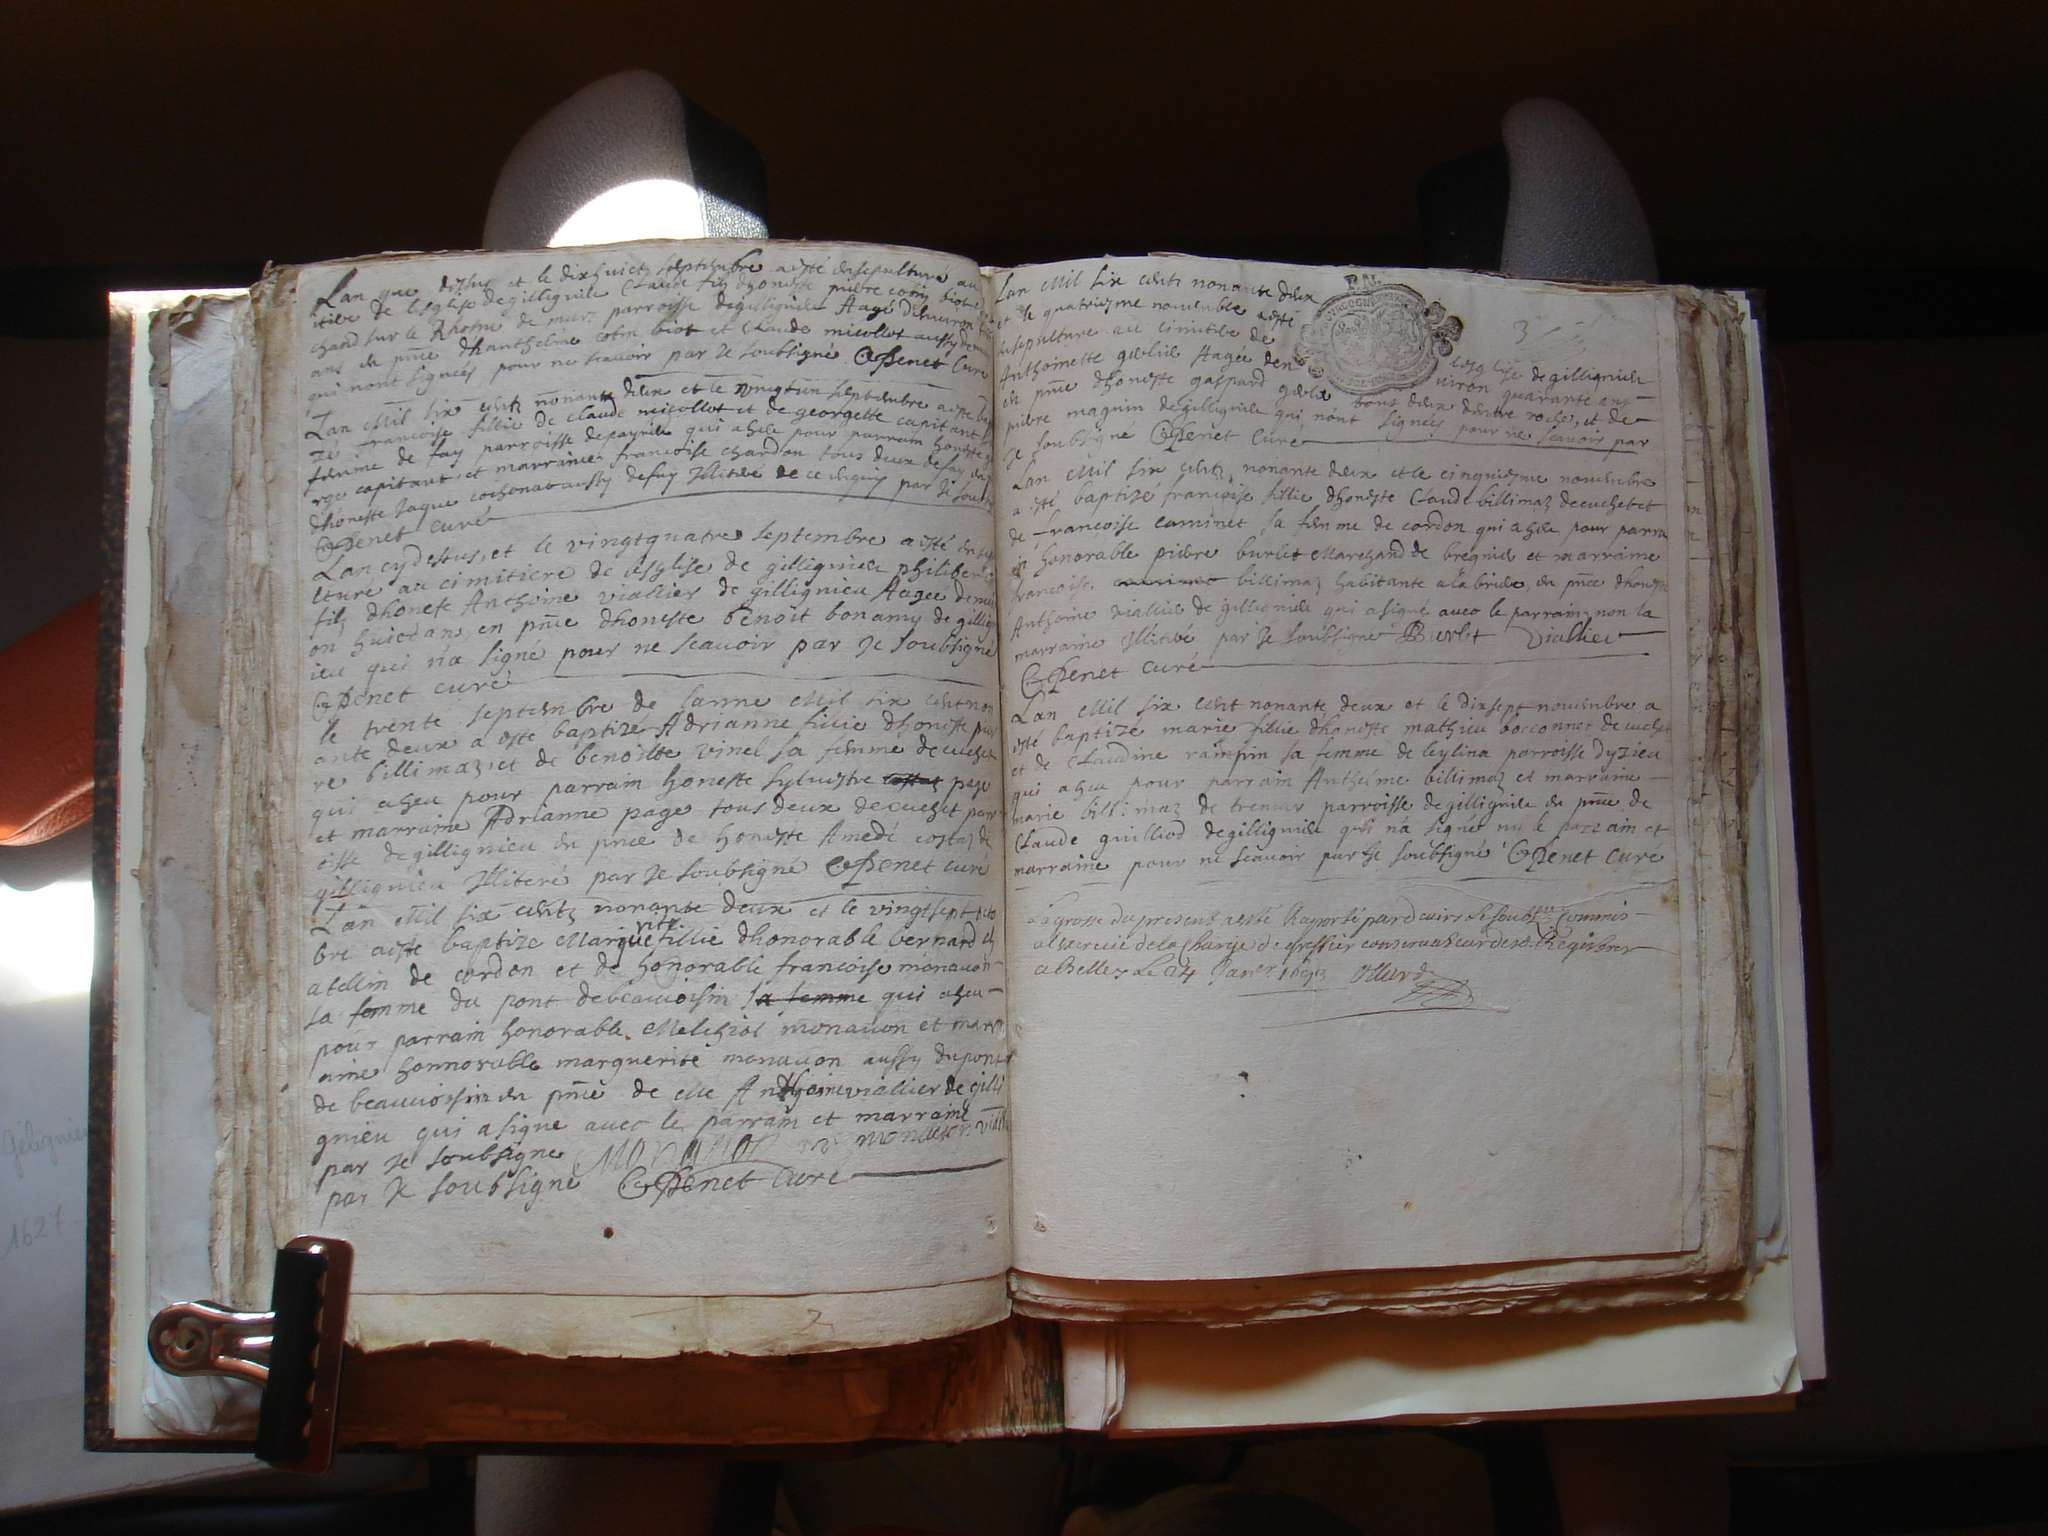 Lan que dessus et le dixhuict septembre a esté ensepulturé au
itiere de lesglise de gillignieu Claude fils dhoneste pierre colin biot
chand sur le Rhosne de murs parroisse de gillignieu Aagé denuiron
ans en pnce dhanthelme colin biot et Claude micollot aussy de
qui nont signés pour ne scauoir par Je soubsigné Penet Curé
Lan Mil six centz nonante deux et le vingtun septembre a esté
françoise fillie de claude micollot et de georgette capitant
femme de fay parroisse de peyrieu qui a heu pour parrain honeste
rge capitant et marraine francoise chardon tous deux de fay
dhoneste Jaque cochona aussy de fay Illiteré de ce enquis par Je soub
Penet curé
Lan cy dessus et le vingtquatre septembre a esté en
lturé au cimitiere de lesglise de gillignieu philibert
fils dhoneste Anthoine viallier de gillignieu Aagee denui
on huict ans en pnce dhoneste benoit bonamy de gillign
ieu qui n'a signé pour ne scauoir par Je soubsigné
Penet curé
le trente septembre de lanne Mil six cent non
ante deux a este baptize Adrianne fillie dhoneste pier
re billimaz et de benoiste vinel sa femme de cuchet
qui a heu pour parrain honeste syluestre costaz page
et marraine Adrianne page tous deux de cuchet parr
oisse de gillignieu en pnce de honeste Amedé costaz de
gillignieu Illiteré par Je soubsigné Penet curé
Lan Mil six centz nonante deux et le vingtsept octo
bre a este baptize Marguerite fillie dhonorable bernard
atellin de cordon et de honorable francoise monauon
sa femme du pont de beauuoisin sa femme qui a heu
pour parrain honorable Melchiol monauon et marr
aine honnorable marguerite monauon aussy du pont
de beauuoisin en pnce de me Anthoine viallier de gilli
gnieu qui a signe auec le parrain et marraine
par Je soubsigne Monauon
par Je soubsigne Penet Curé
2
P.N.
3
Lan Mil six centz nonante deux
et le quatriesme nouembre a esté
ensepulture au cimitiere de lesglise de gillignieu
Anthoinette goelliee Aagée denuiron quarante ans
en pnce dhoneste gaspard goelie tous deux dentre roches, et de
pierre magnin de gillignieu qui n'ont signés pour ne scauoir par
Je soubsigné Penet Curé
Lan Mil six centz nonante deux et le cinquiesme nouembre
a esté baptizé francoise fillie dhoneste Claude billimaz de cuchet et
de francoise cuminet sa femme de cordon qui a heu pour parra
in honorable pierre burlet Marchand de bregnieu et marraine
francoise cuminet billimaz habitante a la bride, en pnce dhoneste
Anthoine viallier de gillignieu qui a signé auec le parrain non la
marraine Illiteré par Je soubsigne Burlet Viallier
Penet curé
Lan Mil six cent nonante deux et le dixsept nouembre a
esté baptize marie fillie dhoneste mathieu borconnet de cuchet
et de Claudine rampin sa femme de leylina parroisse dyzieu
qui a heu pour parrain Anthelme billimaz et marraine
marie billimaz de tremur parroisse de gillignieu en pnce de
Claude guilliod de gillignieu qui n'a signé ny le parrain et
marraine pour ne scauoir par Je soubsigné Penet Curé
La grosse du present a esté Raporté pardeuers le soubs. Commis
a lexercice de la charge de greffier conseruateur desd. Registres
a Belley le 24 Janer 1693